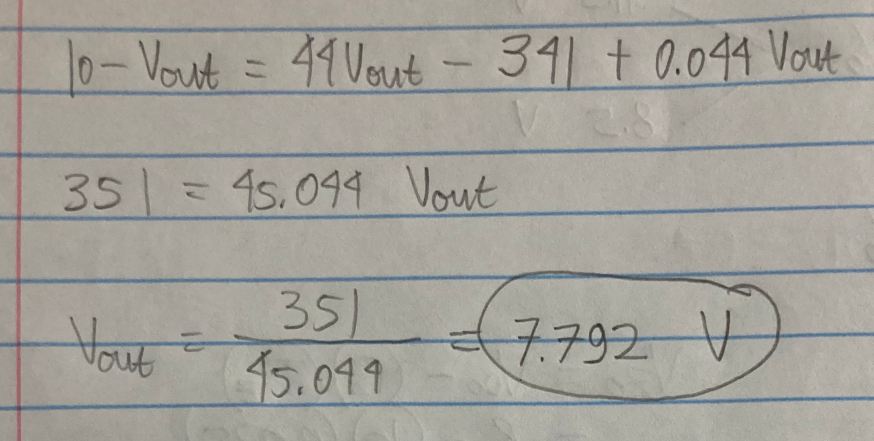 10 - Vout = 44Vout - 341 + 0.044 Vout
351 = 45.044 Vout
Vout = 351/45.044 = 7.792 V